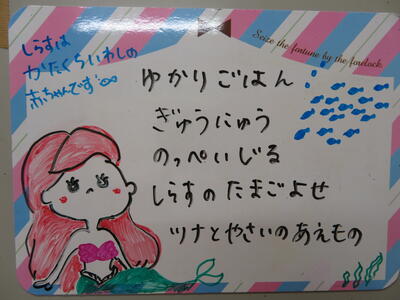 しらすは
かたくちいわしの
赤ちゃんです
Seize the fortune by the forelock.
ゆかりごはん
ぎゅうにゅう
のっぺいじる
しらすのたまごよせ
ツナとやさいのあえもの